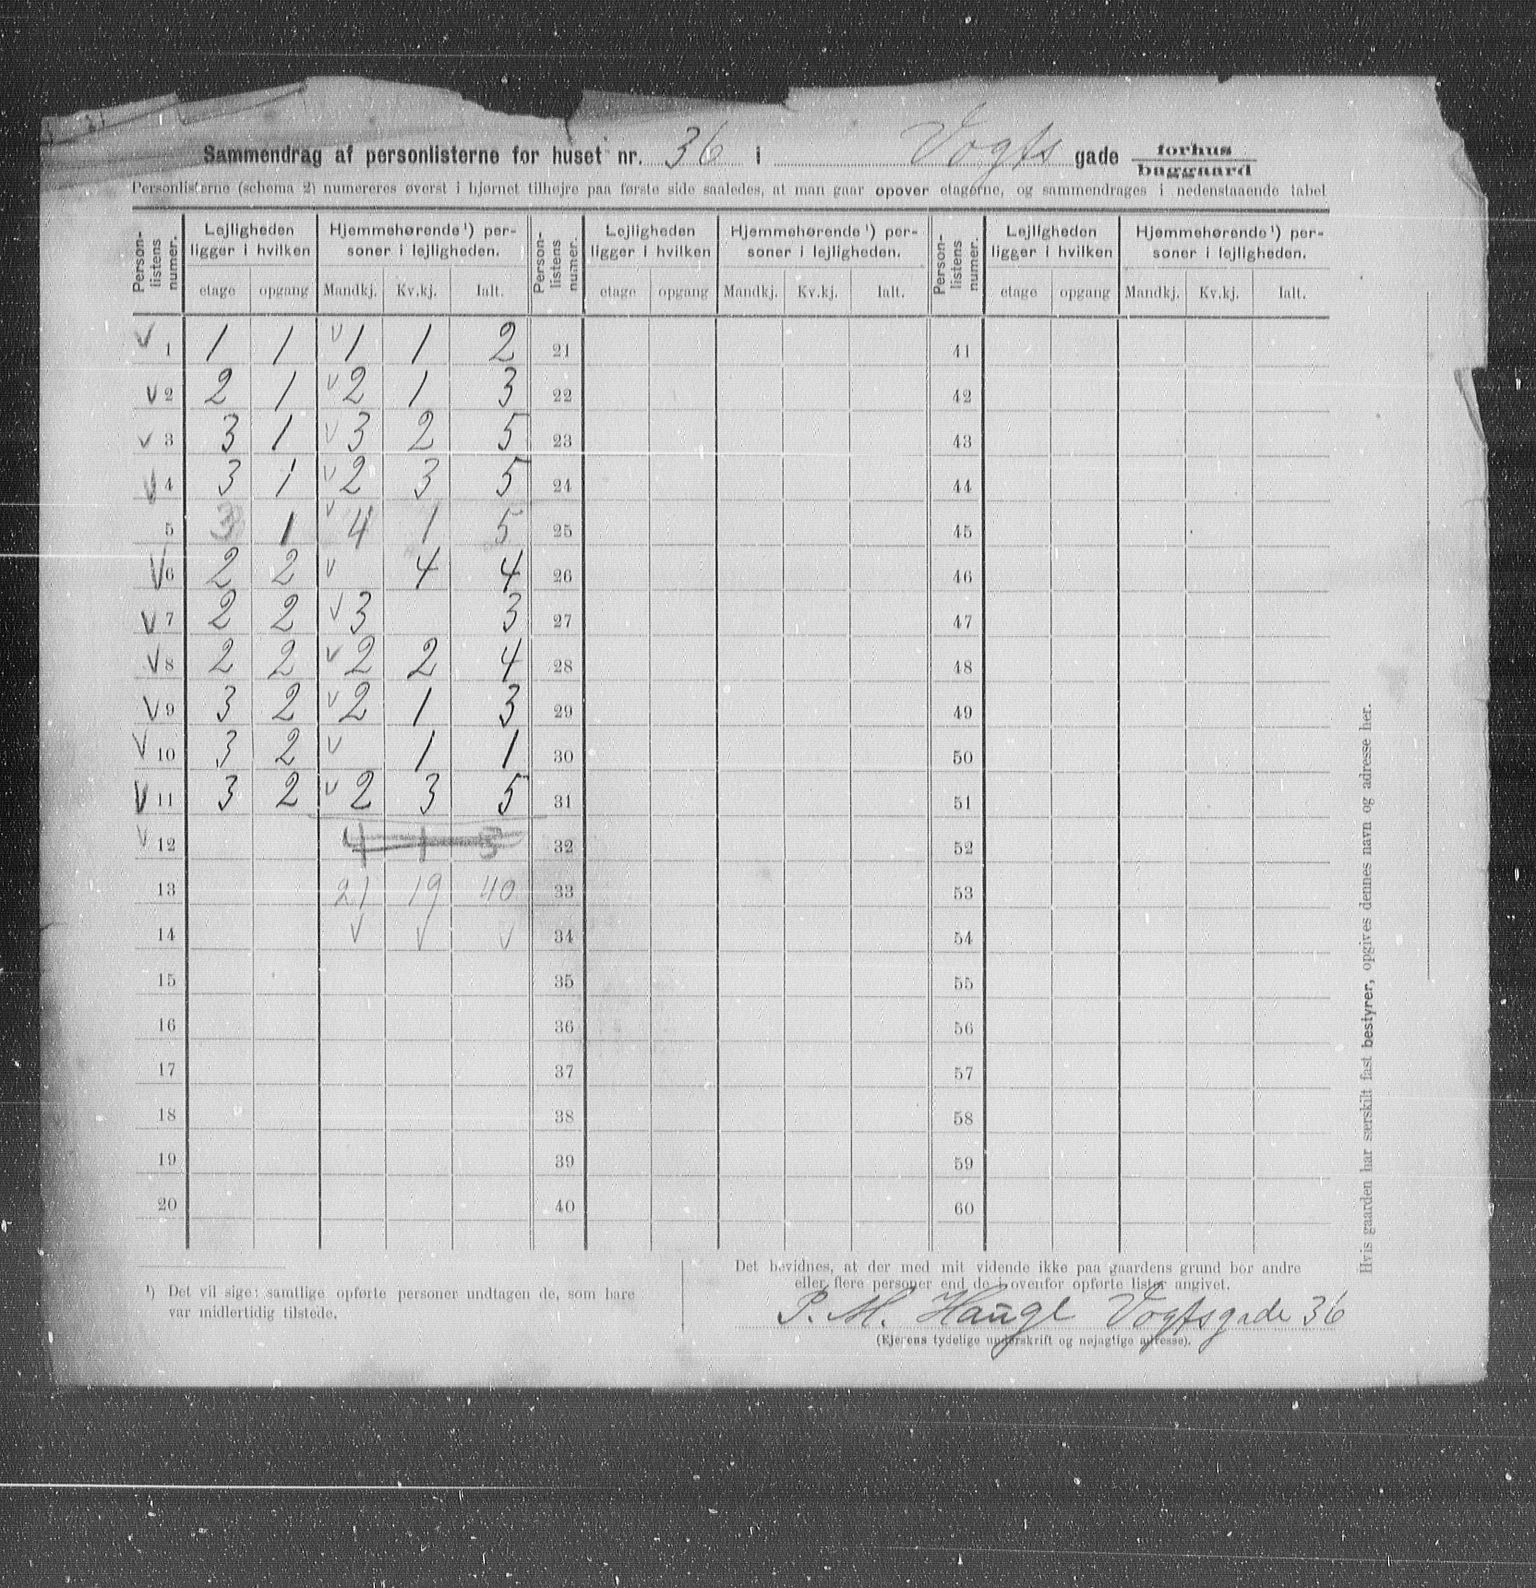 Sammendrag af personlisterne for huset nr. 36 i Vogts gade forhus baggaard
Personlisterne (schema 2) numereres øverst i hjørnet tilhøjre paa første side saaledes, at man gaar opover etagerne, og sammendrages i nedenstaaende tabel
Person-listens numer. Lejligheden ligger i hvilken Hjemmehørende ¹) per-soner i lejligheden. Person-listens numer. Lejligheden ligger i hvilken Hjemmehørende ¹) per-soner i lejligheden. Person-listens numer. Lejligheden ligger i hvilken Hjemmehørende ¹) per-soner i lejligheden.
etage opgang Mandkj. Kv.kj. Ialt. etage opgang Mandkj. Kv.kj. Ialt. etage opgang Mandkj. Kv.kj. Ialt.
v 1 1 1 v 1 1 2 21 41
v 2 2 1 v 2 1 3 22 42
v 3 3 1 v 3 2 5 23 43
v 4 3 1 v 2 3 5 24 44
5 3 1 v 4 1 5 25 45
v 6 2 2 v 4 4 26 46
v 7 2 2 v 3 3 27 47
v 8 2 2 v 2 2 4 28 48
v 9 3 2 v 2 1 3 29 49
v 10 3 2 v 1 1 30 50
v 11 3 2 v 2 3 5 31 51
v 12 4 1 32 52
13 21 19 40 33 53
14 v v v 34 54
15 35 55
16 36 56
17 37 57
18 38 58
19 39 59
20 40 60
¹) Det vil sige: samtlige opførte personer undtagen de, som bare
var midlertidig tilstede.
Det bevidnes, at der med mit vidende ikke paa gaardens grund bor andre
eller flere personer end de i ovenfor opførte lister angivet.
P. M. Haugl Vogtsgade 36
(Ejerens tydelige underskrift og nøjagtige adresse).
Hvis gaarden har særskilt fast bestyrer, opgives dennes navn og adresse her.